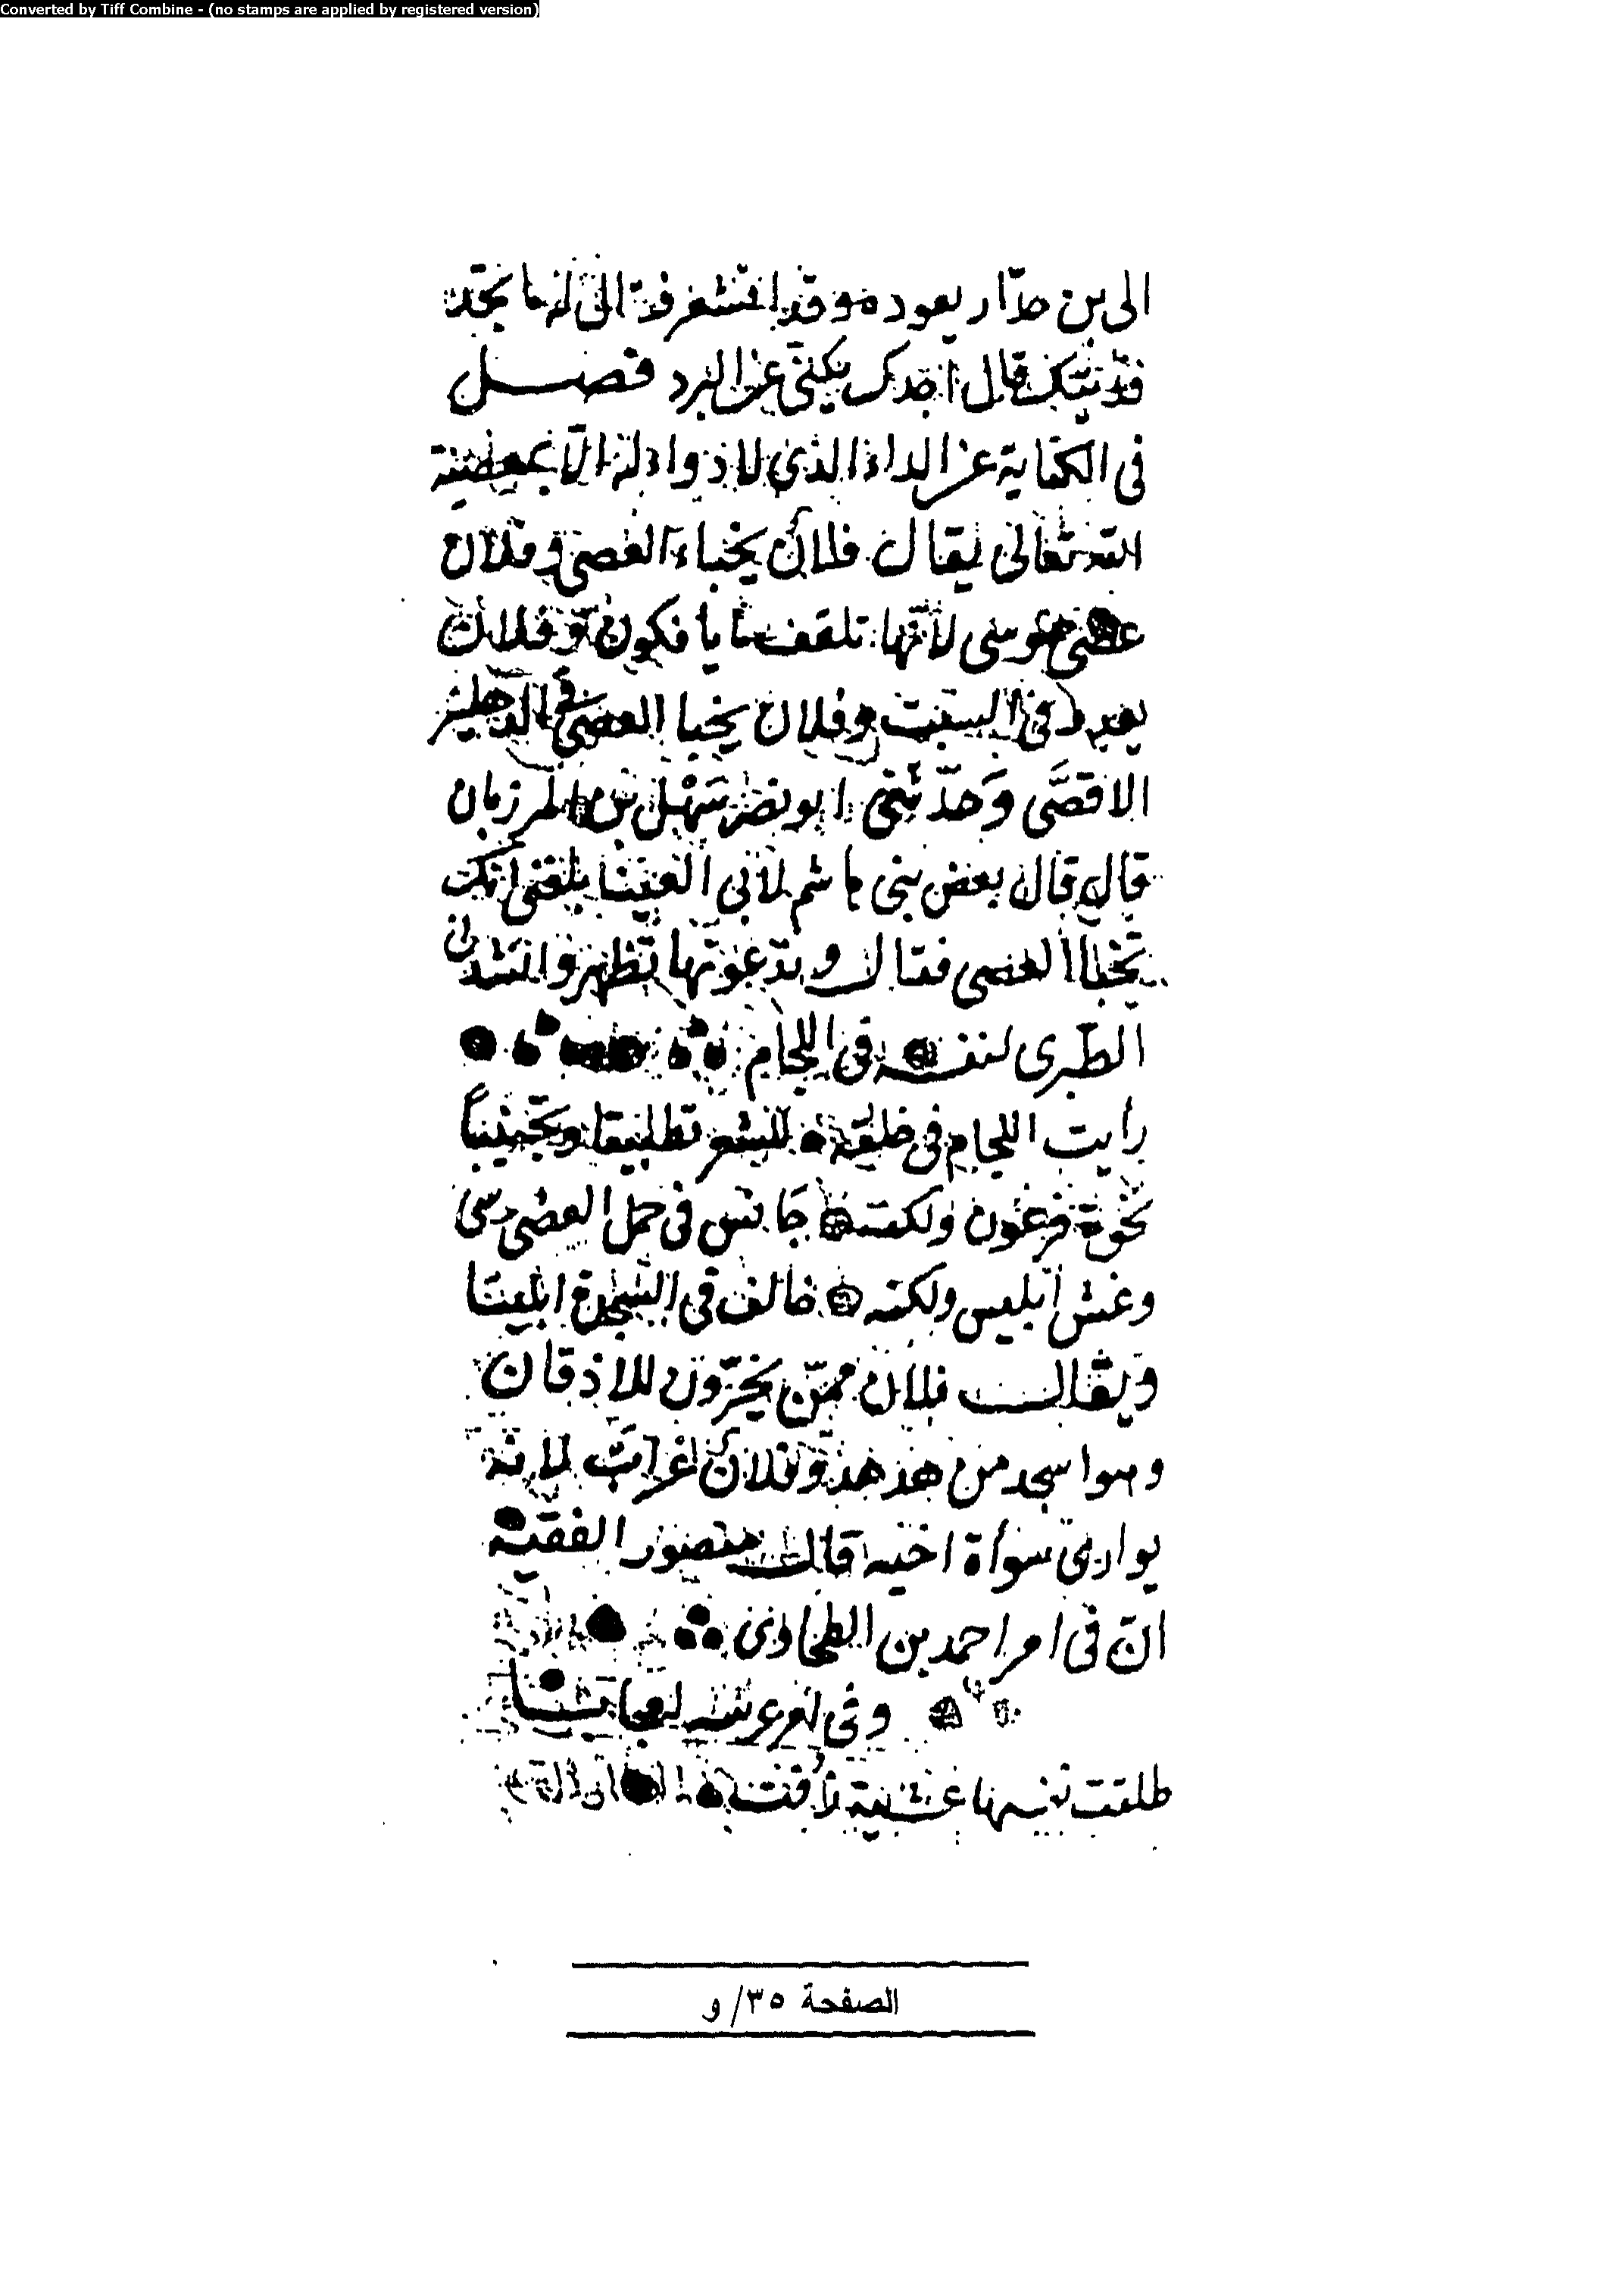 Converted by Tiff Combine - (no stamps are applied by registered version)
الى بن يعوده وقد اقشعر فقال له ما تجد
فديتك قال اجدك يكنى عن البرد فصل
فى الكناية عن الداء الذي لا دواء له الا بمعصية
الله تعالى يقال فلان يخباء العصى وفلان
عصى موسى لانها تلقف ما يافكون وفلان
يعدو فى السبت وفلان يخبا العصى فى الدهليز
الاقصى وحدثنى ابو نصر سهل بن المرزبان
قال قال بعض بنى هاشم لابى العينا بلغنى انك
تخبا العصى فقال وتدعونها تظهر وانشدنى
الطبرى لنفسه فى اللجام
رايت اللجام فى خلقه للشعر تطبيقا وتجنيسا
نخوة فرعون ولكنه جانس فى حمل العصى موسى
وغش ابليس ولكنه خالف فى السجدة ابليسا
ويقال فلان ممن يخرون للاذقان
وهو اسجد من هدهد وفلان غراب لانه
يوارى سوأة اخيه قال منصور الفقيه
ان فى امر احمد بن الطحاوى
وفى عرسه لعجايبنا
طلقت نفسها عشية زفت
الصفحة ٣٥/ و